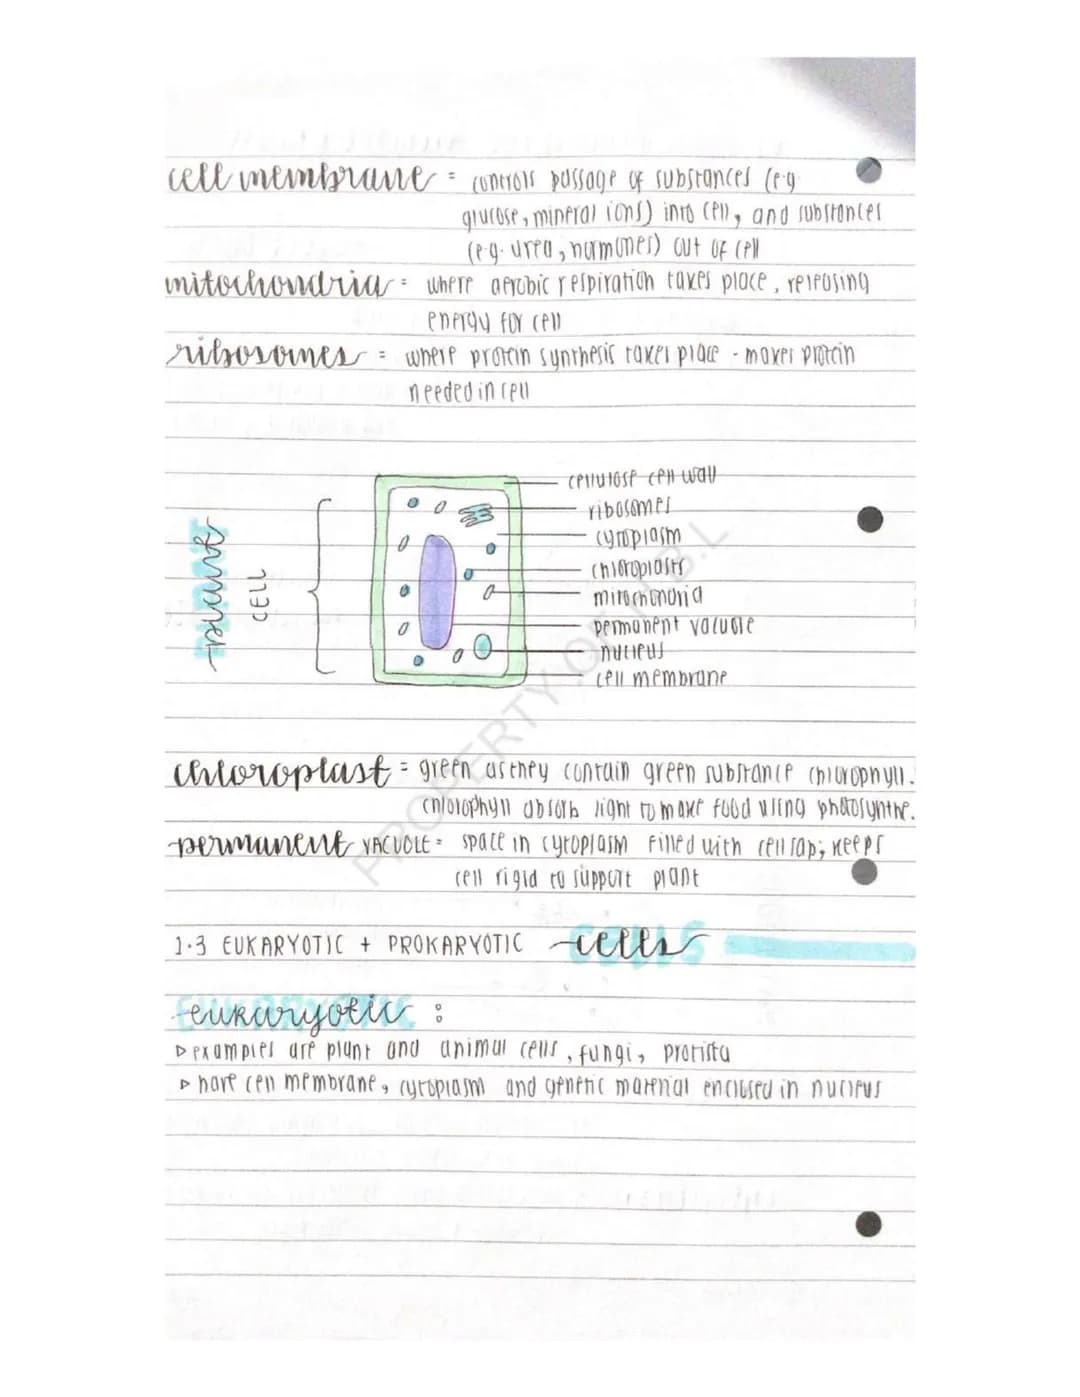 cell membrane = controls passage of substances (e.g.
glucose, mineral ions) into cell, and substances
(e.g. urea, hormones) out of cell
mitochondria = where aerobic respiration takes place, releasing
energy for cell
ribosomes = where protein synthesis takes place - makes protein
needed in cell
plant
CELL
cellulose cell wall
ribosomes
cytoplasm
chloroplasts
mitochondria
permanent vacuole
nucleus
cell membrane
chloroplast = green as they contain green substance chlorophyll.
chlorophyll absorb light to make food using photosynthe.
permanent VACUOLE = space in cytoplasm filled with cell sap; keeps
cell rigid to support plant
1.3 EUKARYOTIC + PROKARYOTIC cells
eukaryotic :
▷ examples are plant and animal cells, fungi, protista
▷ have cell membrane, cytoplasm and genetic material enclosed in nucleus